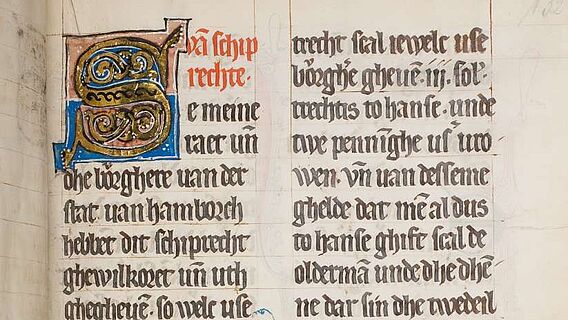 vā schip
rechte·
Se meine
raet uñ
dhe bo̊rghere uan der
stat· uan hamborch
hebbet dit schiprecht
ghewilkoret uñ uth
ghegheuē· so welc use
trecht scal iewelc use
bo̊rghe gheuē· iij· sol'·
trechtis to hanse· unde
twe penninghe us' uro
wen· vñ uan desseme
ghelde dat mē al dus
to hanse ghift scal de
olderman unde dhe dhē
ne dar sin dhe twedeil